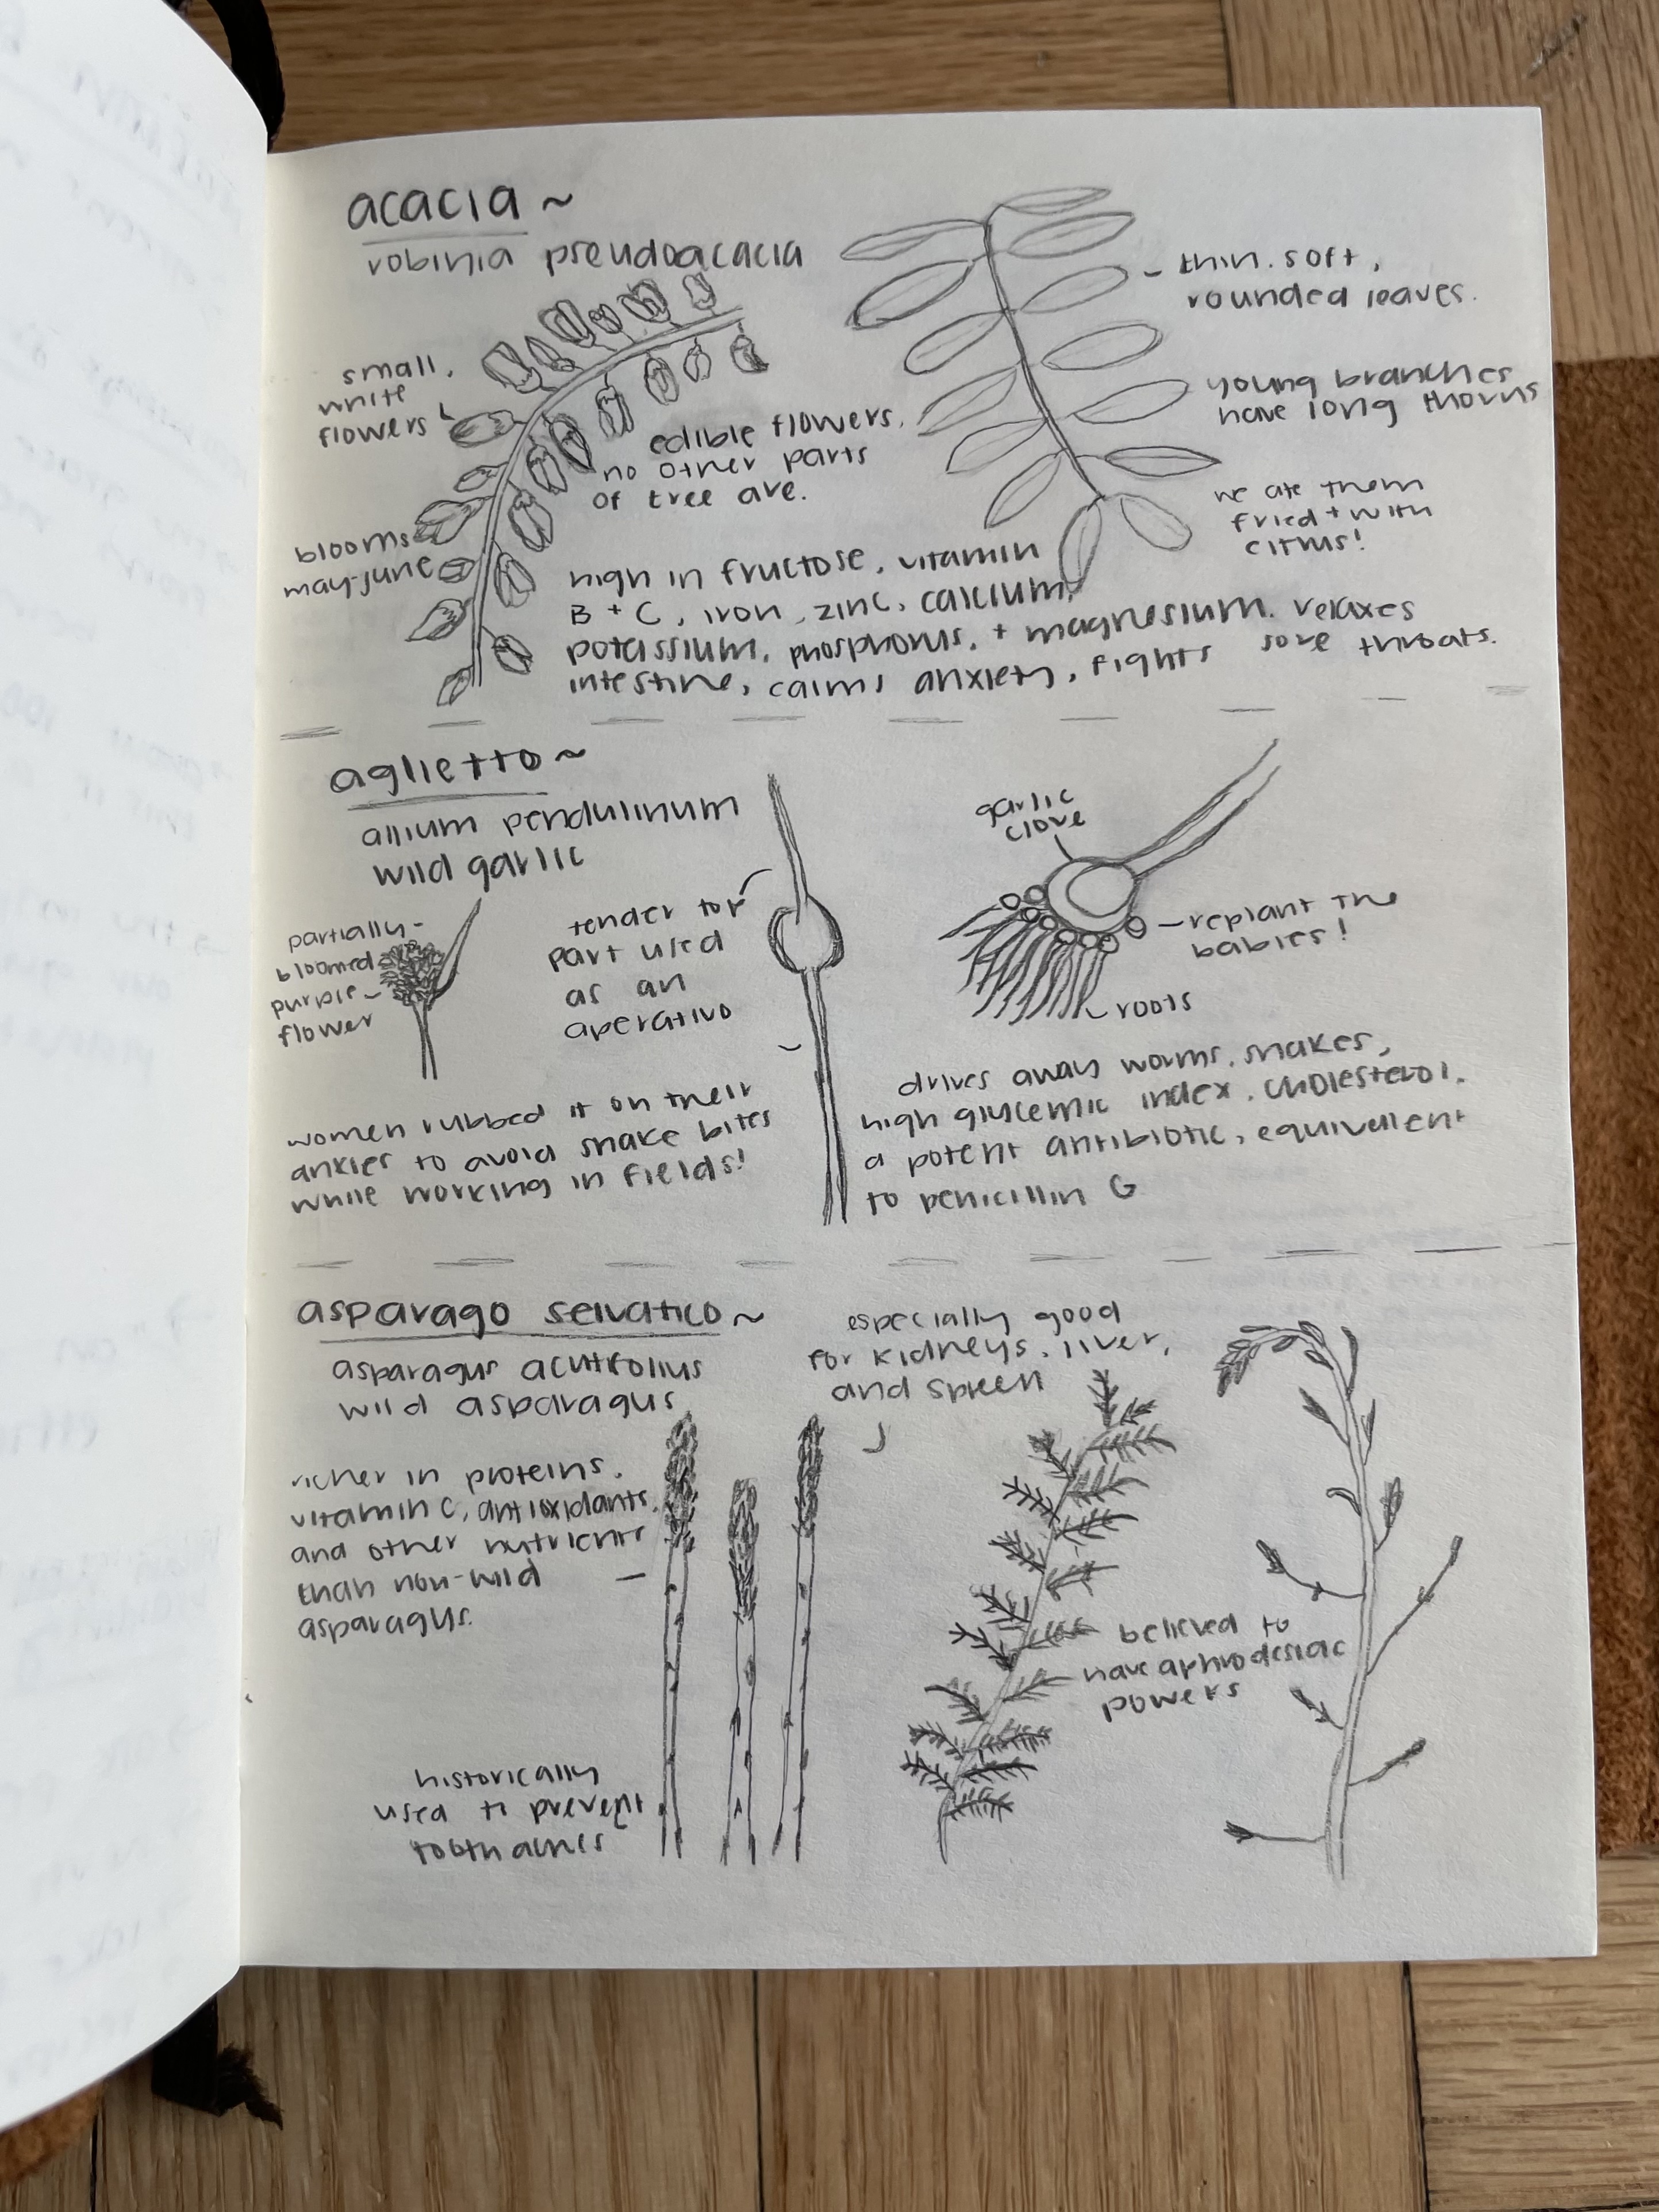 acacia ~
robinia pseudoacacia
small,
white
flowers
edible flowers,
no other parts
of tree are.
blooms
may-june
- thin, soft,
rounded leaves.
young branches
have long thorns
we ate them
fried + with
citrus!
high in fructose, vitamin
B + C, iron, zinc, calcium,
potassium, phosphorus, + magnesium. relaxes
intestine, calms anxiety, fights sore throats.
aglietto ~
allium pendulinum
wild garlic
partially-
bloomed
purple-
flower
tender top
part used
as an
aperativo
garlic
clove
- replant the
babies!
roots
women rubbed it on their
ankles to avoid snake bites
while working in fields!
drives away worms, snakes,
high glycemic index, cholesterol.
a potent antibiotic, equivellent
to penicillin G
asparago selvatico ~
asparagus acutifolius
wild asparagus
especially good
for kidneys, liver,
and spleen
richer in proteins,
vitamin C, antioxidants,
and other nutrients
than non-wild
asparagus.
believed to
have aphrodesiac
powers
historically
used to prevent
toothaches